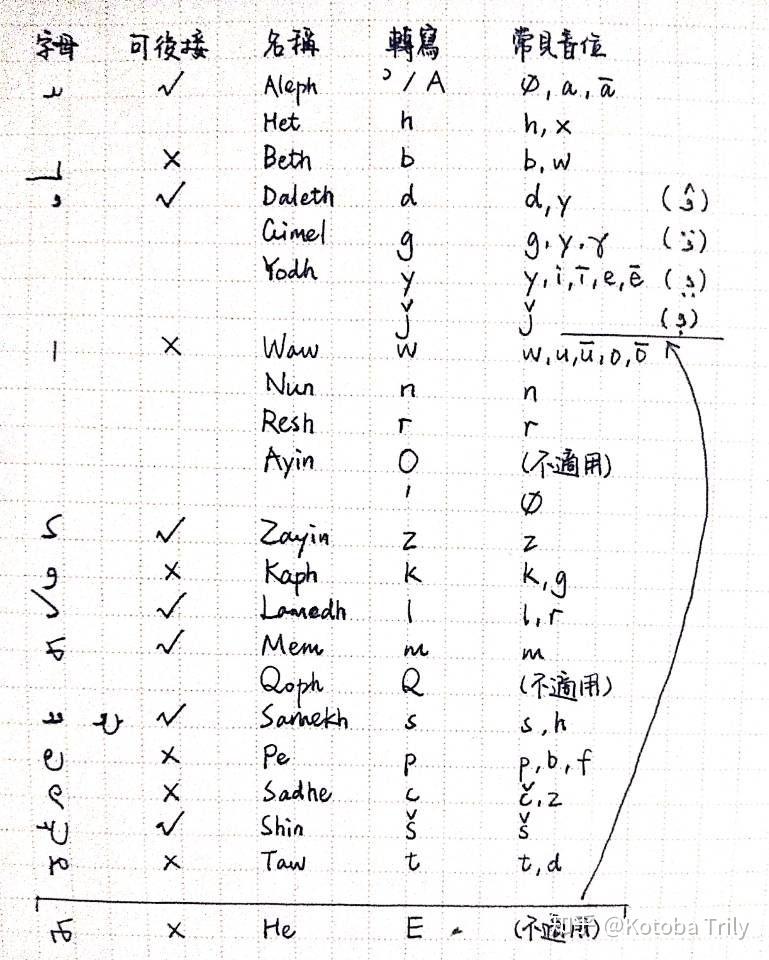 字母 可後接 名稱 轉寫 常見音位
✓ Aleph ʾ / A ∅, a, ā
Het h h, x
× Beth b b, w
✓ Daleth d d, y
Gimel g g, y, γ
Yodh y y, i, ī, e, ē
ǰ ǰ
× Waw w w, u, ū, o, ō
Nun n n
Resh r r
Ayin O (不適用)
' ∅
✓ Zayin z z
× Kaph k k, g
✓ Lamedh l l, r
✓ Mem m m
Qoph Q (不適用)
✓ Samekh s s, h
× Pe p p, b, f
× Sadhe c č, z
✓ Shin š š
× Taw t t, d
× He E (不適用)
知乎 @Kotoba Trily